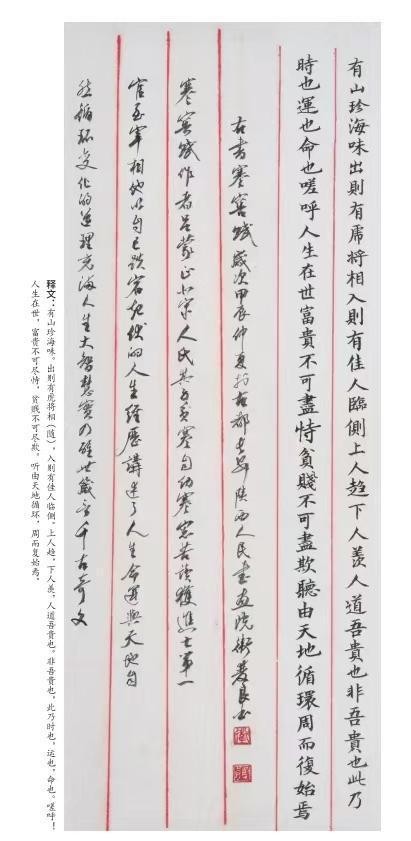 有山珍海味出則有虎將相入則有佳人臨側上人趋下人羨人道吾貴也非吾貴也此乃
時也運也命也嗟呼人生在世富貴不可盡恃貧賤不可盡欺聽由天地循環周而復始焉
右書寒窑賦歲次甲辰仲夏於古都長安陝西人民書画院衛良書
寒窑賦作者吕蒙正北宋人氏其寒自幼寒窓苦讀獲進士第一
官至宰相他以自己跌宕起伏的人生經歷講述了人生命運與天地自
然循环变化的道理充满人生大智慧實乃醒世箴言千古奇文
释文：有山珍海味。出则有虎将相（随），入则有佳人临侧。上人趋，下人羡，人道吾贵也。非吾贵也，此乃时也，运也，命也。嗟呼！
人生在世，富贵不可尽恃，贫贱不可尽欺，听由天地循环，周而复始焉。